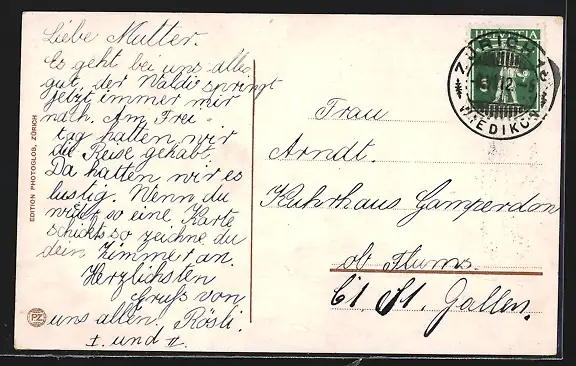 Liebe Mutter.
Es geht bei uns alles
gut, der Waldi springt
jetzt immer mir
nach. Am Frei-
tag hatten wir
die Reise gehabt.
Da hatten wir es
lustig. Wenn du
wider so eine Karte
schickst so zeichne du
dein Zimmer an.
Herzlichsten
Gruß von
uns allen. Rösli.
I. und II.
EDITION PHOTOGLOB, ZÜRICH
PZ
HELVETIA
ZÜRICH
WIEDIKON
Frau
Arndt.
Kuhrhaus Gamperdon
ob Flums.
Ct. St. Gallen.